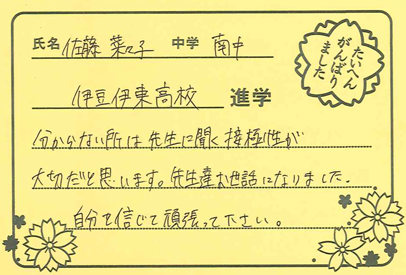 氏名 佐藤 菜々子 中学 南中
たいへん
がんばり
ました
伊豆伊東高校 進学
分からない所は先生に聞く積極性が
大切だと思います。先生達お世話になりました.
自分を信じて頑張って下さい。